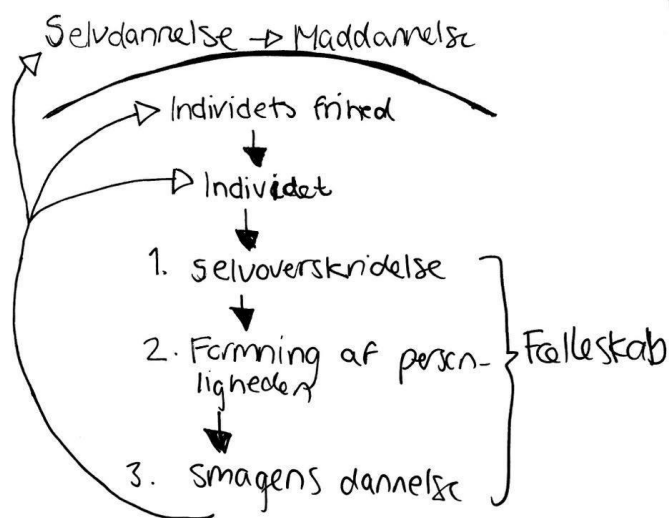 Selvdannelse → Maddannelse
Individets frihed
Individet
1. Selvoverskridelse
2. Formning af person-
ligheden
Fælleskab
3. Smagens dannelse